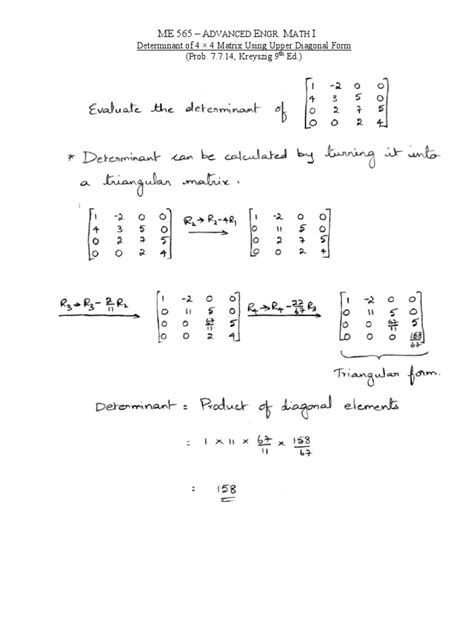 ME 565 – ADVANCED ENGR. MATH I
Determinant of 4 × 4 Matrix Using Upper Diagonal Form
(Prob. 7.7.14, Kreyszig 9th Ed.)
Evaluate the determinant of
1 -2 0 0
4 3 5 0
0 2 7 5
0 0 2 4
* Determinant can be calculated by turning it into
a triangular matrix.
1 -2 0 0
4 3 5 0
0 2 7 5
0 0 2 4
R2 → R2-4R1
1 -2 0 0
0 11 5 0
0 2 7 5
0 0 2 4
R3 → R3 - 2/11 R2
1 -2 0 0
0 11 5 0
0 0 67/11 5
0 0 2 4
R4 → R4 - 22/67 R3
1 -2 0 0
0 11 5 0
0 0 67/11 5
0 0 0 158/67
Triangular form.
Determinant = Product of diagonal elements
= 1 × 11 × 67/11 × 158/67
= 158